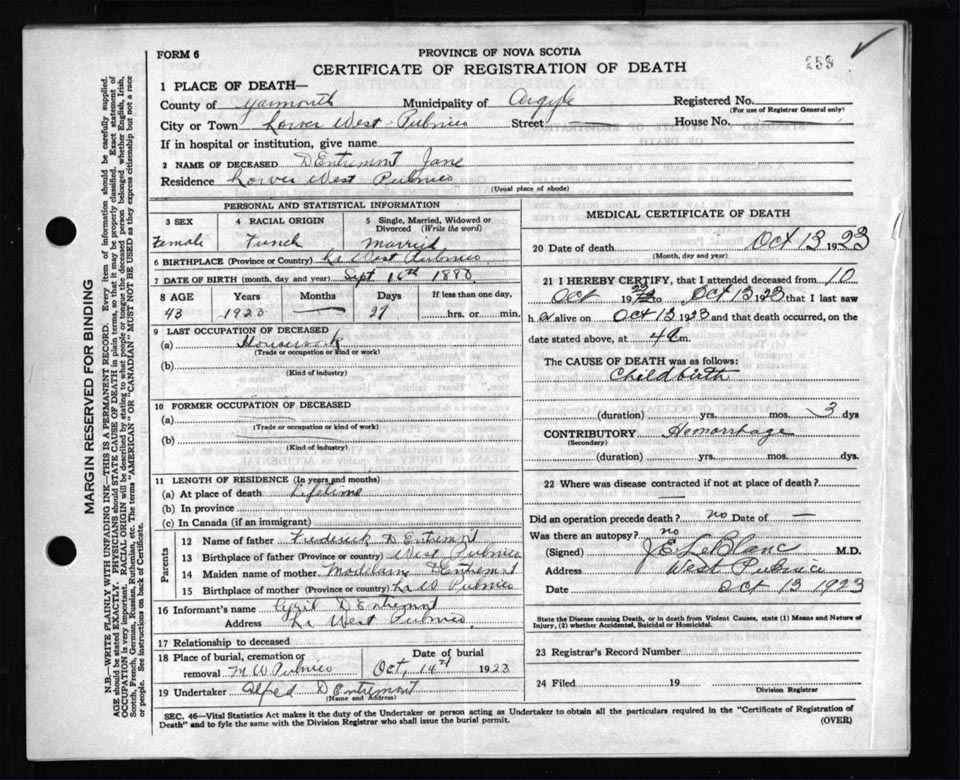 FORM 6
PROVINCE OF NOVA SCOTIA
CERTIFICATE OF REGISTRATION OF DEATH
259
1 PLACE OF DEATH—
County of Yarmouth Municipality of Argyle Registered No.
(For use of Registrar General only)
City or Town Lower West Pubnico Street — House No. —
If in hospital or institution, give name
2 NAME OF DECEASED D Entremont Jane
Residence Lower West Pubnico
(Usual place of abode)
PERSONAL AND STATISTICAL INFORMATION
3 SEX 4 RACIAL ORIGIN 5 Single, Married, Widowed or Divorced (Write the word)
Female French Married
6 BIRTHPLACE (Province or Country) Lr West Pubnico
7 DATE OF BIRTH (month, day and year) Sept 16th 1880
8 AGE Years Months Days If less than one day,
43 1923 — 27 hrs. or min.
9 LAST OCCUPATION OF DECEASED
(a) Housework
(Trade or occupation or kind or work)
(b)
(Kind of industry)
10 FORMER OCCUPATION OF DECEASED
(a)
(Trade or occupation or kind of work)
(b)
(Kind of industry)
11 LENGTH OF RESIDENCE (In years and months)
(a) At place of death Lifetime
(b) In province
(c) In Canada (if an immigrant)
Parents
12 Name of father Frederick D Entremont
13 Birthplace of father (Province or country) West Pubnico
14 Maiden name of mother D Entremont
15 Birthplace of mother (Province or country) Lr W Pubnico
16 Informant's name D Entremont
Address Lr West Pubnico
17 Relationship to deceased
18 Place of burial, cremation or removal M W Pubnico
Date of burial
Oct, 14th 1923
19 Undertaker Alfred D Entremont
(Name and Address)
MEDICAL CERTIFICATE OF DEATH
20 Date of death Oct 13 1923
(Month, day and year)
21 I HEREBY CERTIFY, that I attended deceased from 10
Oct 1923 to Oct 13 1923 that I last saw
h er alive on Oct 13 1923 and that death occurred, on the
date stated above, at 4 a m.
The CAUSE OF DEATH was as follows:
Childbirth
(duration) yrs. mos. 3 dys
CONTRIBUTORY Hemorrhage
(Secondary)
(duration) yrs. mos. dys.
22 Where was disease contracted if not at place of death?
—
Did an operation precede death? no Date of —
Was there an autopsy? no
(Signed) J E LeBlanc M.D.
Address West Pubnico
Date Oct 13 1923
State the Disease causing Death, or in death from Violent Causes, state (1) Means and Nature of
Injury, (2) whether Accidental, Suicidal or Homicidal.
23 Registrar's Record Number
24 Filed 19
Division Registrar
SEC. 46—Vital Statistics Act makes it the duty of the Undertaker or person acting as Undertaker to obtain all the particulars required in the "Certificate of Registration of
Death" and to fyle the same with the Division Registrar who shall issue the burial permit.
(OVER)
MARGIN RESERVED FOR BINDING
N.B.—WRITE PLAINLY WITH UNFADING INK—THIS IS A PERMANENT RECORD. Every item of information should be carefully supplied.
AGE should be stated EXACTLY. PHYSICIANS should STATE CAUSE OF DEATH in plain terms, so that it may be properly classified. Exact statement of
OCCUPATION is very important. RACIAL ORIGIN will be described by stating to what people or tongue the deceased person belonged whether English, Irish,
Scotch, French, German, Russian, Ruthenian, etc. The terms "AMERICAN" OR "CANADIAN" MUST NOT BE USED as they express citizenship but not a race
or people. See instructions on back of Certificate.